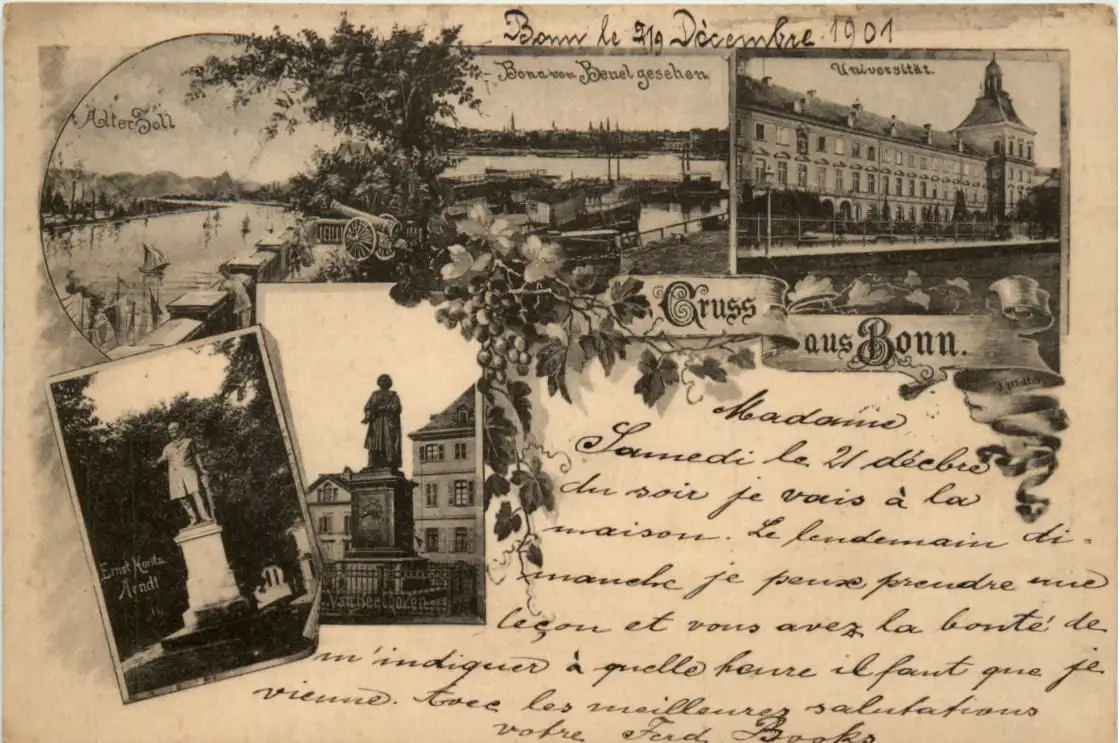 Bonn le 19 Décembre 1901
Alter Zoll
Bonn von Beuel gesehen
Universität.
Gruss
aus Bonn.
Ernst Moritz
Arndt
Van Beethoven
Madame
Samedi le 21 décbre
du soir je vais à la
maison. Le lendemain di-
manche je peux prendre une
leçon et vous avez la bonté de
m'indiquer à quelle heure il faut que je
vienne. Avec les meilleures salutations
votre Ferd Books